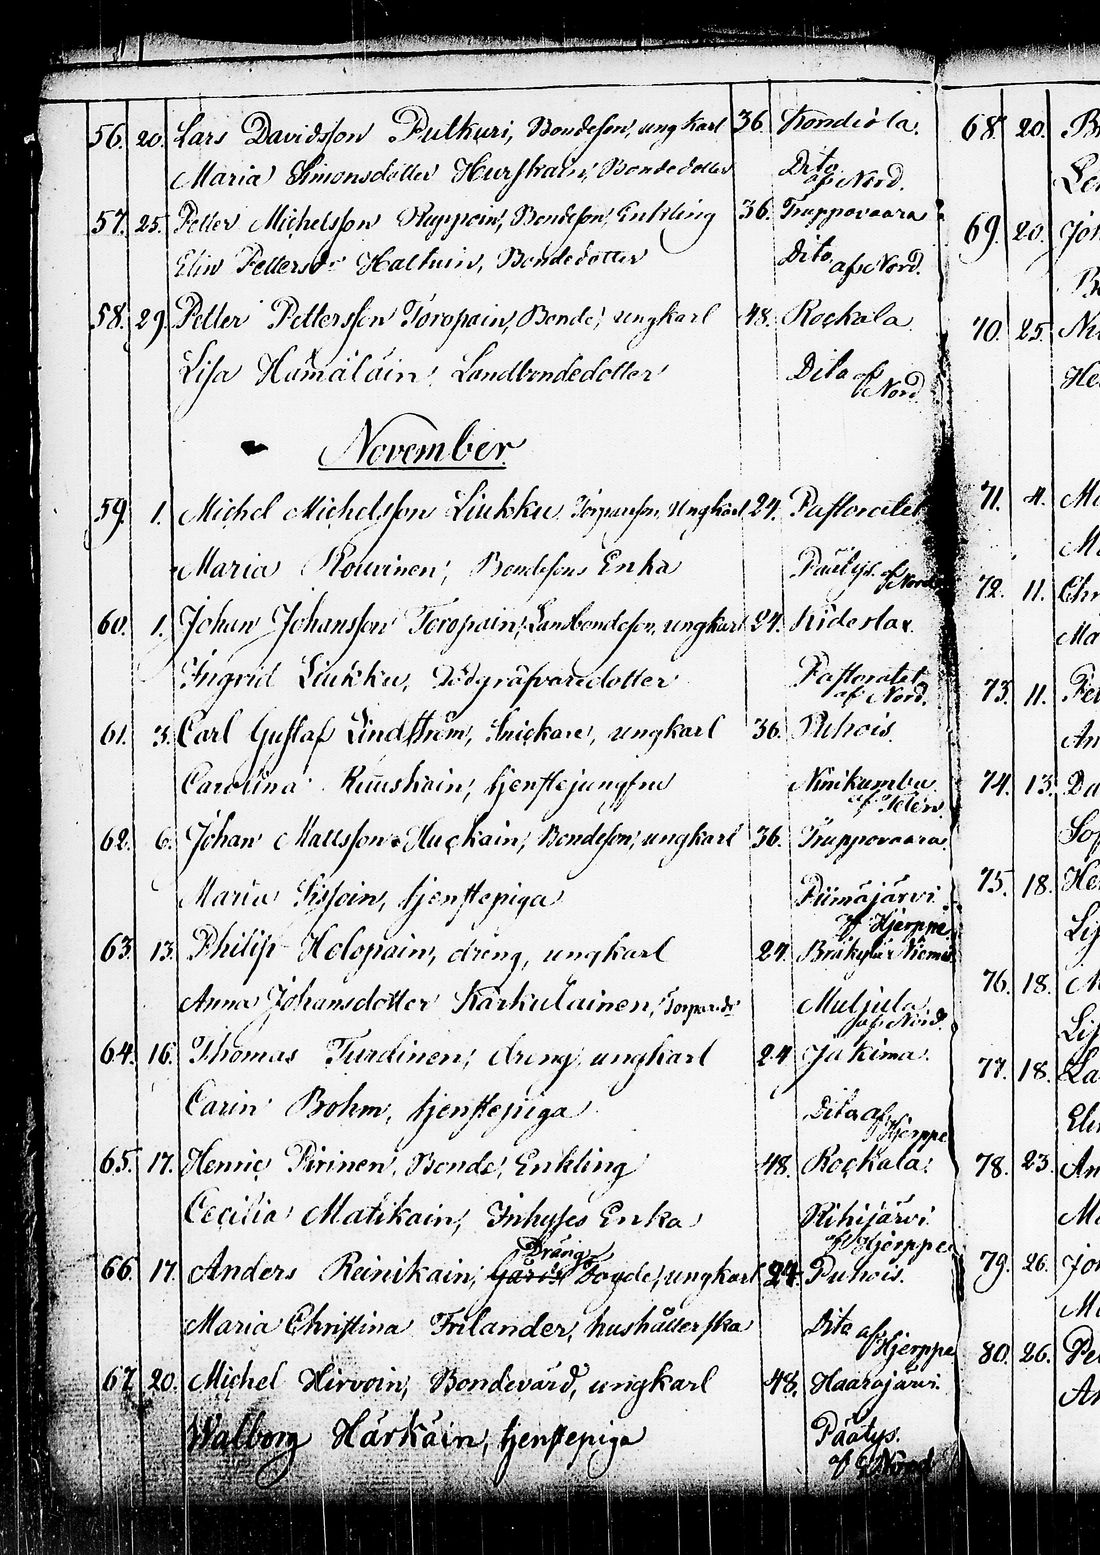 56. 20. Lars Davidsson Pulkuri, Bondeson, ungkarl 36. Kondiola.
Maria Simonsdotter Hurskain, Bondedotter Dito af Nord.
57. 25. Petter Michelsson Ruppoin, Bondeson, Enkling 36. Truppovaara
Elin Pettersdr Haltuin, Bondedotter Dito af Nord.
58. 29. Petter Pettersson Toropain, Bonde, ungkarl 48. Rockala
Lisa Hämäläin, Landbondedotter Dito af Nord
November
59. 1. Michel Michelsson Liukku Torpareson, Ungkarl 24. Pastoratet
Maria Rouvinen, Bondesons Enka Päätys. af Nord
60. 1. Johan Johansson Toropain, Landbondeson, ungkarl 24. Ridesla
Ingrid Liukku, Dödgräfvaredotter Pastoratet af Nord.
61. 3. Carl Gustaf Lindström, Snickare, ungkarl 36. Puhois.
Carolina Ruuskain, tjenstejungfru Ninikumbu af
62. 6. Johan Mattsson Huckain, Bondeson, ungkarl 36. Truppovaara
Maria Sissoin, tjenstepiga Piimäjärvi. af Hjerppe.
63. 13. Philip Holopain, dreng, ungkarl 24.
Anna Johansdotter Kärkulainen, Torparedr Muljula af Nord.
64. 16. Thomas Turdinen, dreng, ungkarl 24 Jukima.
Carin Bohm, tjenstepiga Dito af Hjerppe
65. 17. Henric Pirinen, Bonde, Enkling 48. Rockala.
Cecilia Matikain, Inhyses Enka Rihijärvi af Hjerppe
66. 17. Anders Reinikain, Dräng Fogde, ungkarl 24. Puhois.
Maria Christina Frilander, hushållerska Dito af Hjerppe
67. 20. Michel Hirvoin, Bondevärd, ungkarl 48. Haarajärvi.
Walborg Härkäin, tjenstepiga Päätys. af Nord
68. 20.
69. 20.
70. 25.
71. 4.
72. 11.
73. 11.
74. 13.
75. 18.
76. 18.
77. 18.
78. 23.
79. 26.
80. 26.